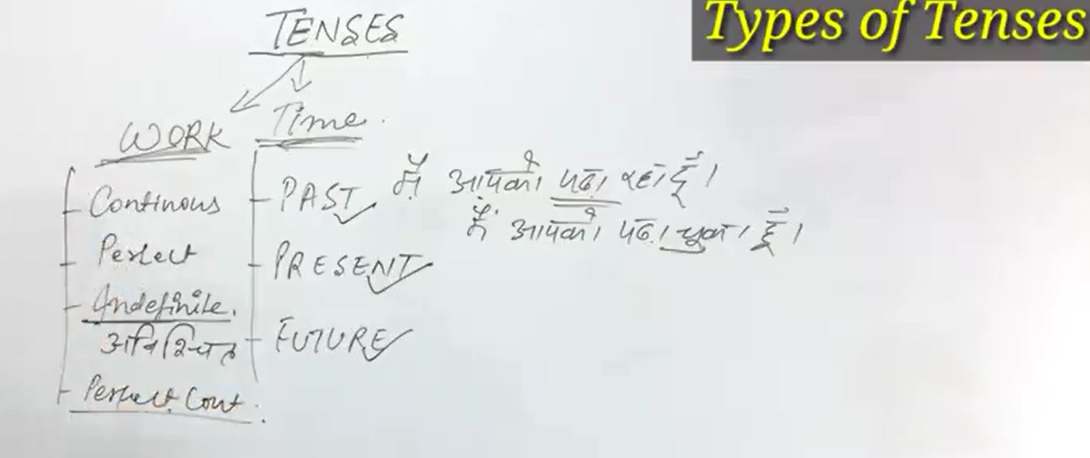 Types of Tenses
TENSES
WORK
Continous
Perfect
Indefinite.
अनिश्चित
Perfect Cont.
Time.
PAST
PRESENT
FUTURE
मैं आपको पढ़ा रहा हूँ।
मैं आपको पढ़ा चुका हूँ।